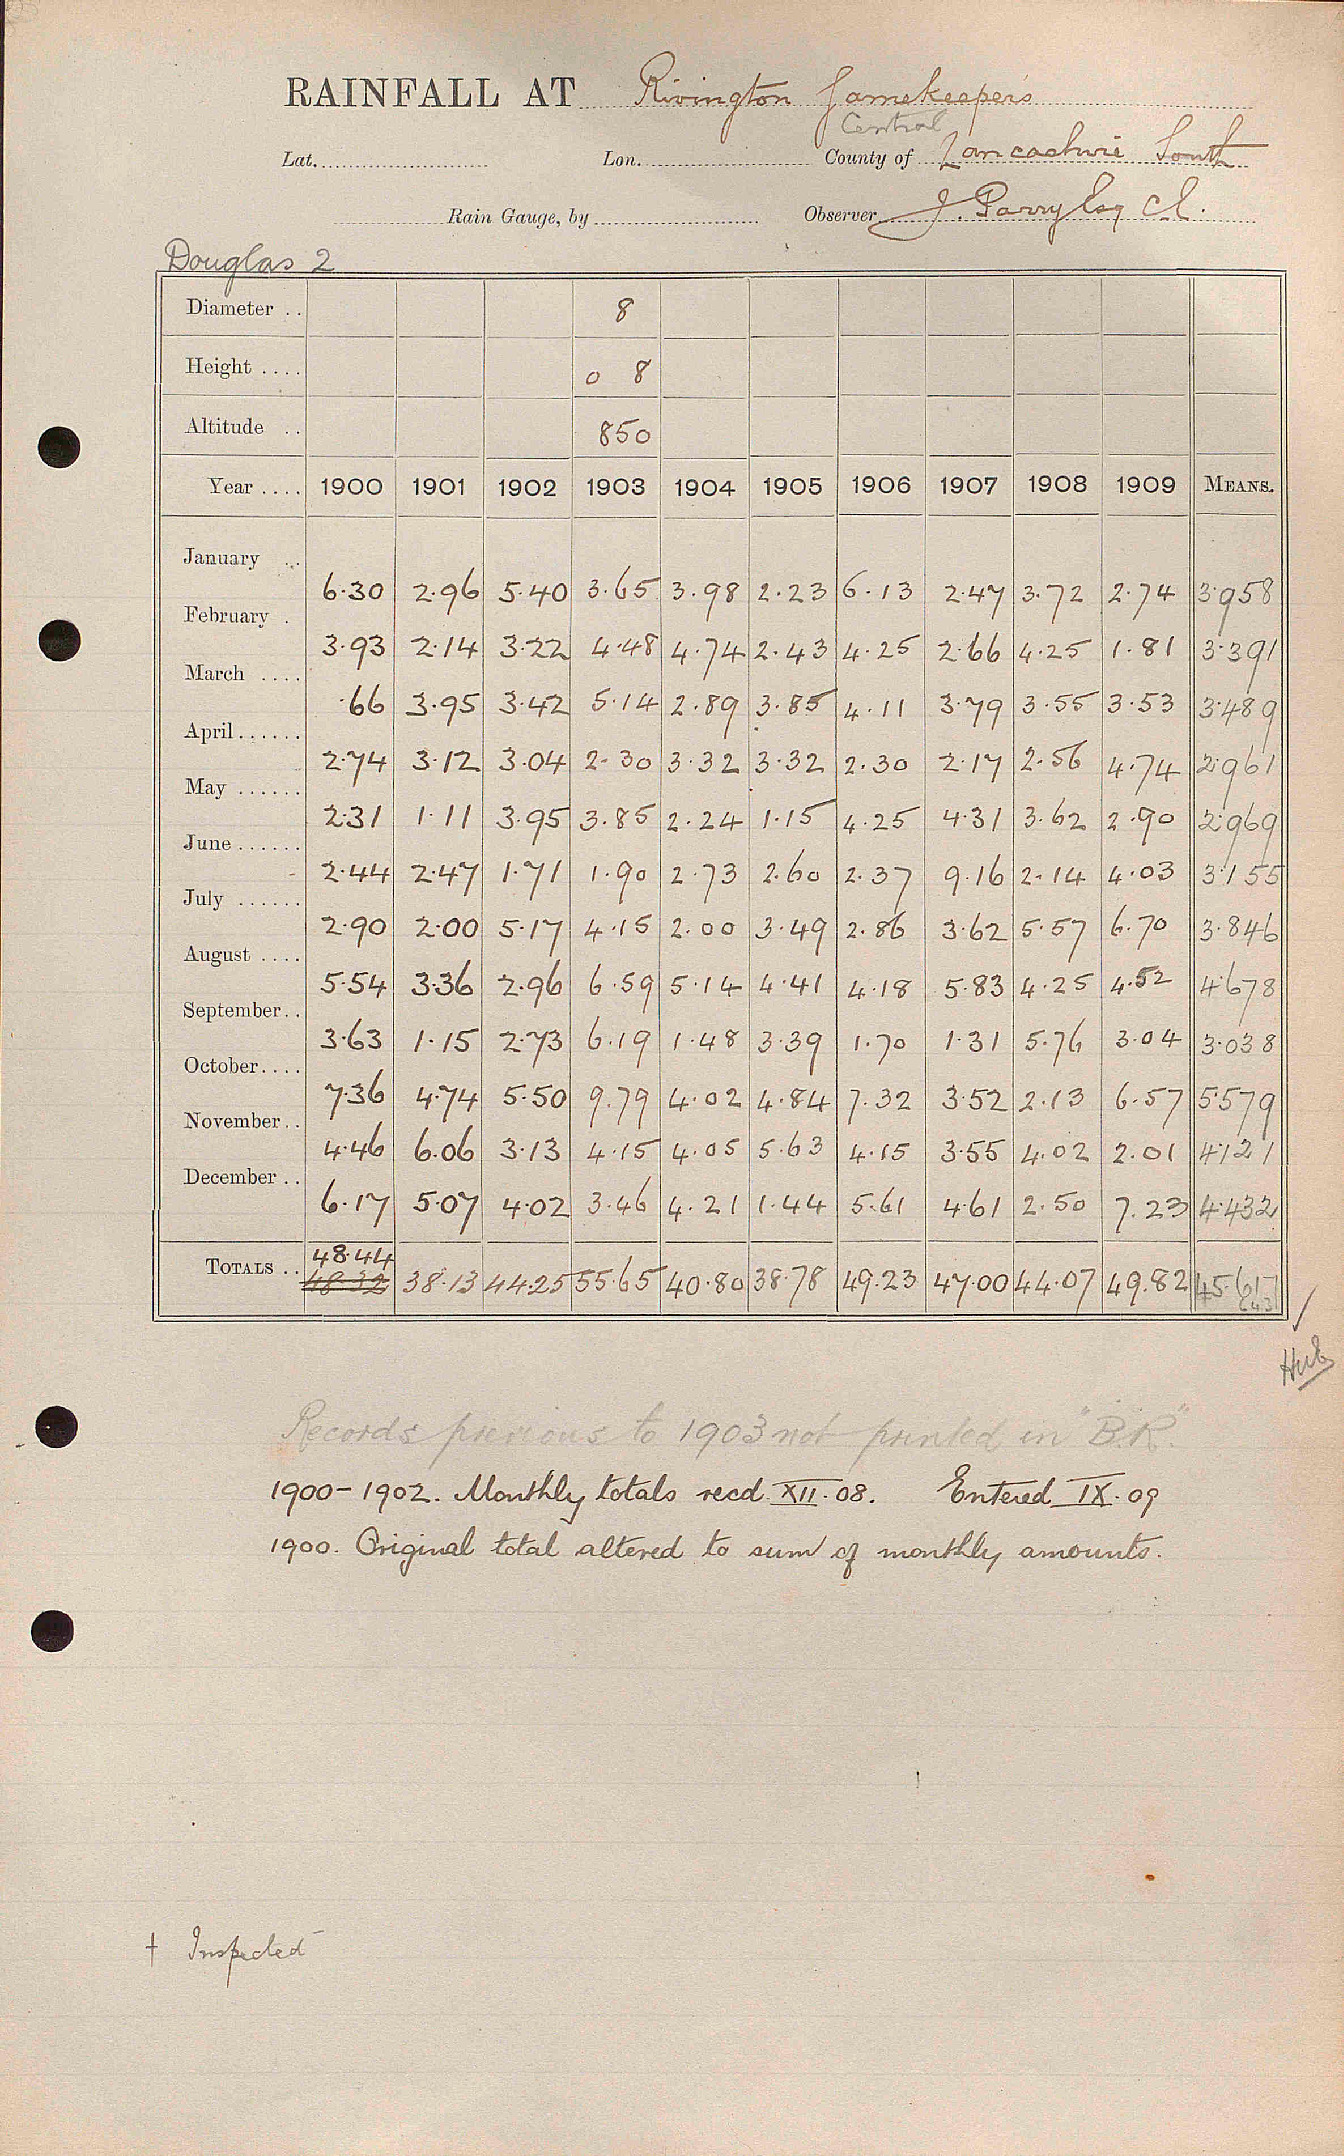 RAINFALL AT Rivington Gamekeeper's
Central
Lat. Lon. County of Lancashire South
Rain Gauge, by Observer J. Parry Esq C.E.
Douglas 2
Diameter .. 8
Height .... 0 8
Altitude .. 850
Year .... 1900 1901 1902 1903 1904 1905 1906 1907 1908 1909 MEANS.
January .. 6.30 2.96 5.40 3.65 3.98 2.23 6.13 2.47 3.72 2.74 3.958
February . 3.93 2.14 3.22 4.48 4.74 2.43 4.25 2.66 4.25 1.81 3.391
March .... .66 3.95 3.42 5.14 2.89 3.85 4.11 3.79 3.55 3.53 3.489
April...... 2.74 3.12 3.04 2.30 3.32 3.32 2.30 2.17 2.56 4.74 2.961
May ...... 2.31 1.11 3.95 3.85 2.24 1.15 4.25 4.31 3.62 2.90 2.969
June...... 2.44 2.47 1.71 1.90 2.73 2.60 2.37 9.16 2.14 4.03 3.155
July ...... 2.90 2.00 5.17 4.15 2.00 3.49 2.86 3.62 5.57 6.70 3.846
August .... 5.54 3.36 2.96 6.59 5.14 4.41 4.18 5.83 4.25 4.52 4.678
September.. 3.63 1.15 2.73 6.19 1.48 3.39 1.70 1.31 5.76 3.04 3.038
October.... 7.36 4.74 5.50 9.79 4.02 4.84 7.32 3.52 2.13 6.57 5.579
November.. 4.46 6.06 3.13 4.15 4.05 5.63 4.15 3.55 4.02 2.01 4.121
December .. 6.17 5.07 4.02 3.46 4.21 1.44 5.61 4.61 2.50 7.23 4.432
48.44
TOTALS .. 48.32 38.13 44.25 55.65 40.80 38.78 49.23 47.00 44.07 49.82 45.617
Records previous to 1903 not printed in "B.R".
1900-1902. Monthly totals recd XII.08. Entered IX.09
1900. Original total altered to sum of monthly amounts.
† Inspected